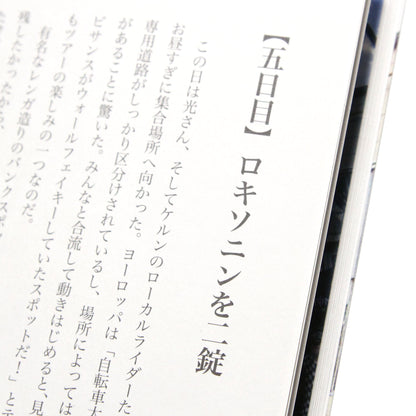 【五日目】ロキソニンを二錠
この日は光さん、そしてケルンのローカルライダーた
お昼すぎに集合場所へ向かった。ヨーロッパは「自転車大
専用道路がしっかり区分けされているし、場所によっては
があることに驚いた。みんなと合流して動きはじめると、見
ピサンスがウォールフェイキーしていたスポットだ！」とテ
もツアーの楽しみの一つなのだ。
有名なレンガ造りのバンクスポッ
残したかったから、